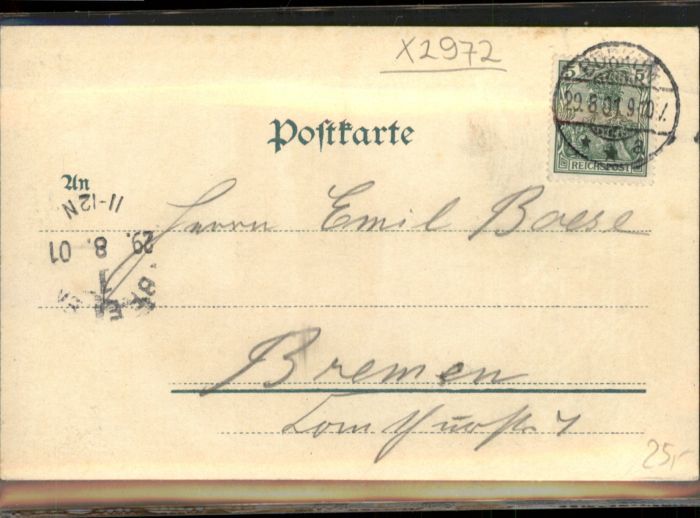 X2972
5 5
29.8.01.9-10V.
* * a
REICHSPOST
Postkarte
An
11-12N
29.
8. 01
1
Herrn Emil Boese
Bremen
25,-